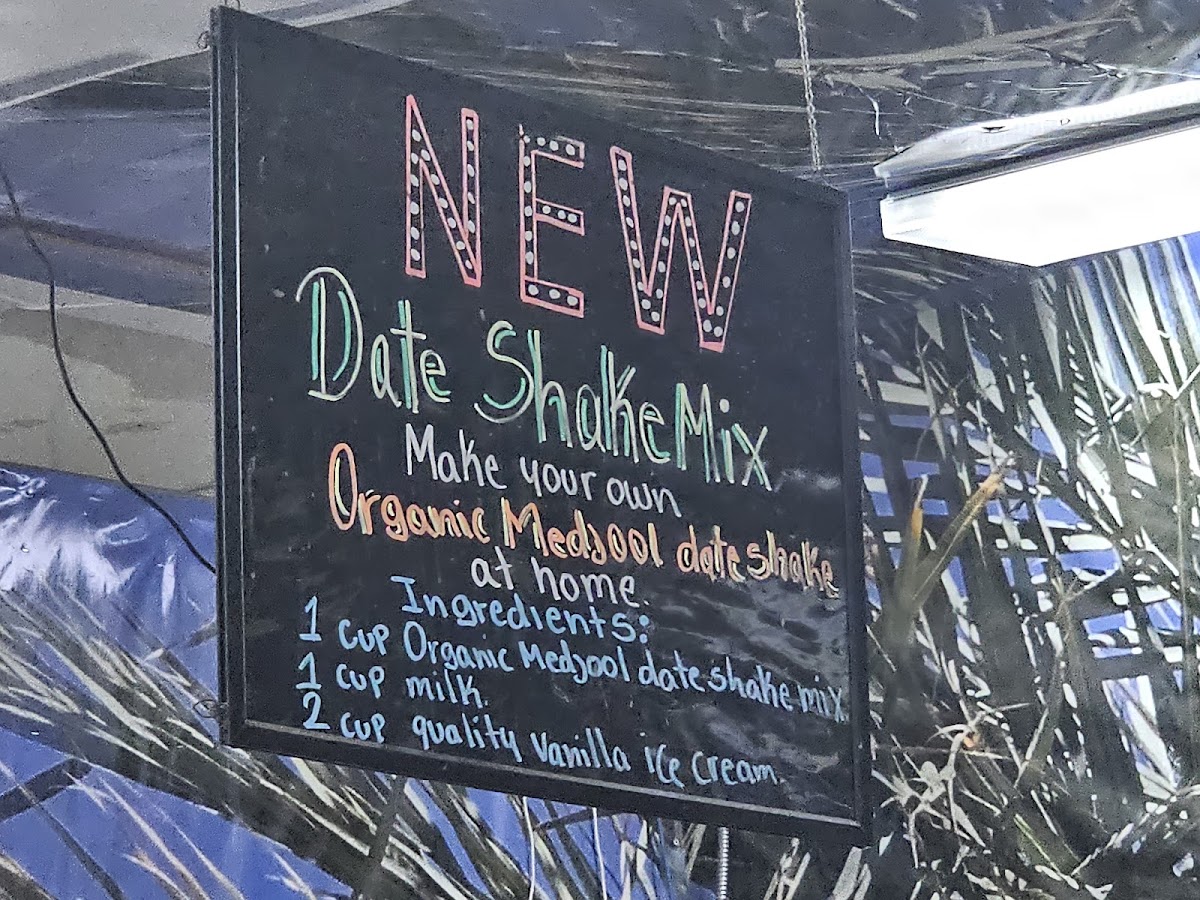 NEW
Date Shake Mix
Make your own
Organic Medjool date shake
at home.
Ingredients:
1 cup Organic Medjool date shake mix
1 cup milk.
2 cup quality vanilla ice cream.